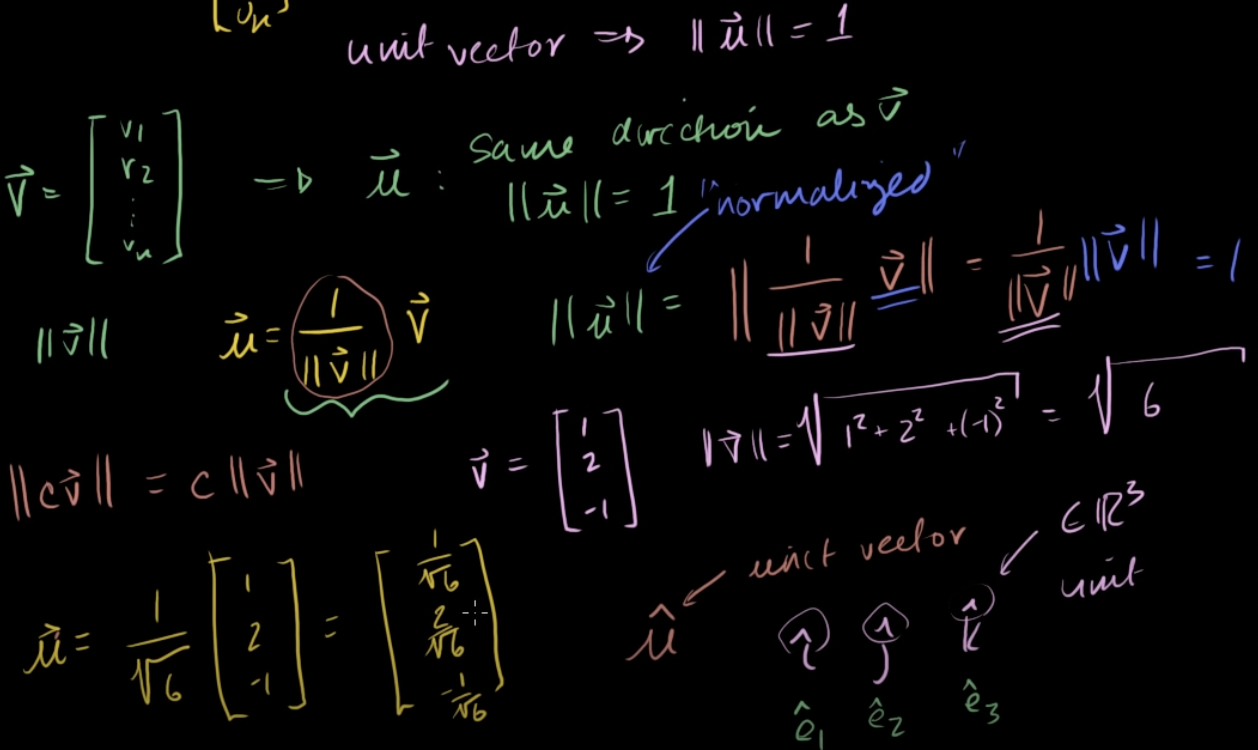 [vₙ]
unit vector ⇒ ‖u⃗‖ = 1
v⃗ = [v₁ v₂ ⋮ vₙ] ⇒ u⃗ : same direction as v⃗
‖u⃗‖ = 1 "normalized"
‖v⃗‖ u⃗ = 1/‖v⃗‖ v⃗ ‖u⃗‖ = ‖ 1/‖v⃗‖ v⃗ ‖ = 1/‖v⃗‖ ‖v⃗‖ = 1
‖cv⃗‖ = c‖v⃗‖ v⃗ = [1 2 -1] ‖v⃗‖ = √(1² + 2² + (-1)²) = √6
u⃗ = 1/√6 [1 2 -1] = [1/√6 2/√6 -1/√6]
û unit vector
î ĵ k̂ ∈ ℝ³
unit
ê₁ ê₂ ê₃